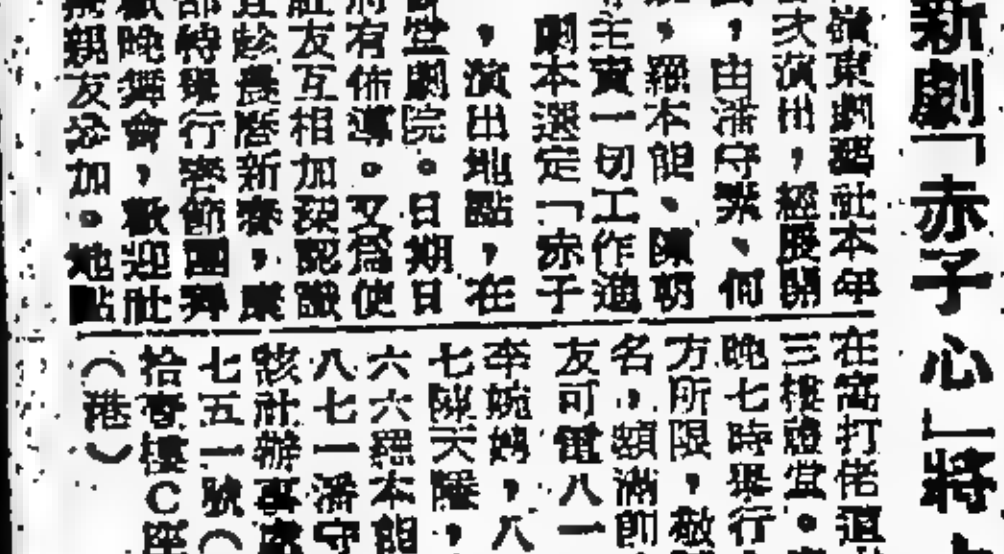 新劇「赤子心」將
嶺東劇藝社本年
次演出，經展開
，由潘守業、何
，羅本能、陳朝
主責一切工作進
劇本選定「赤子
，演出地點，在
堂劇院。日期日
有佈導。又為使
友互相加深認識
農曆新春，
部特舉行春節團拜
晚舞會，歡迎社
親友參加。地點
在窩打老道
三樓禮堂。
晚七時舉行
方所限，敬
名，額滿即
友可電八一
李婉娟，八
七陳天隆，
六六羅本能
八七一潘守
該社辦事處
七五一號（
拾香樓C座
（港）